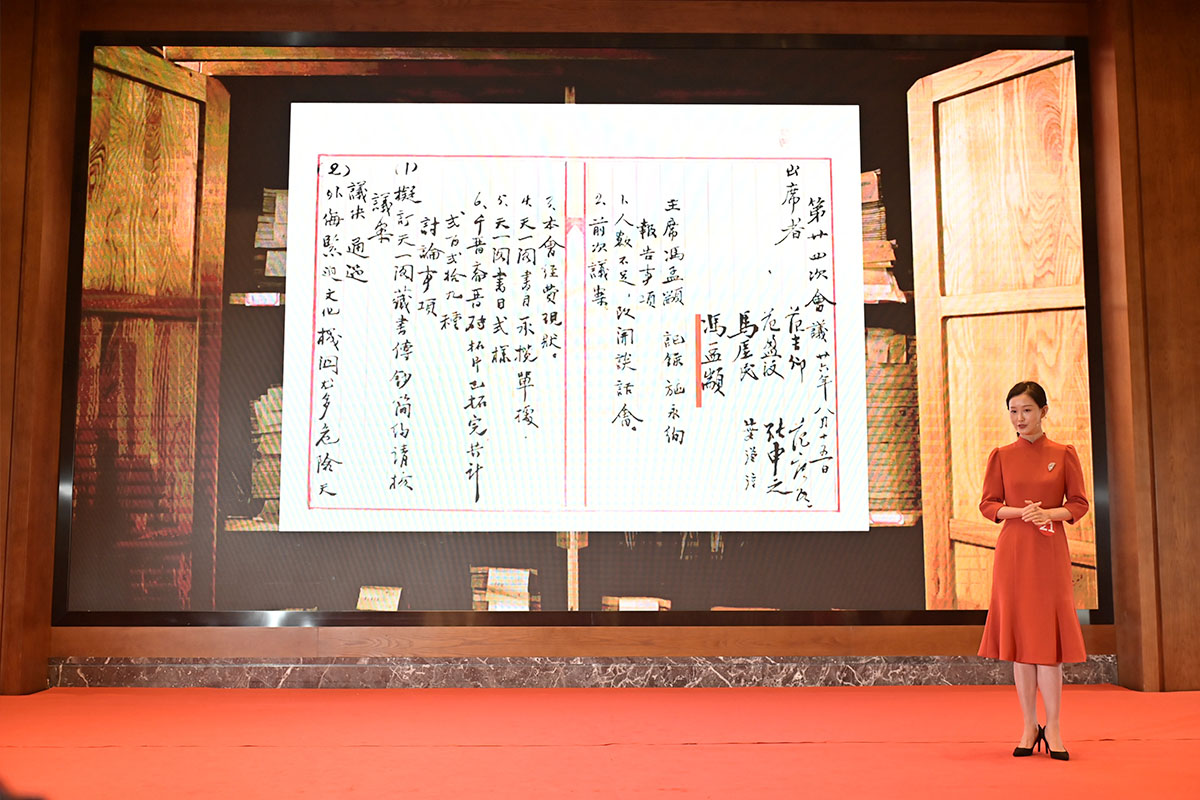 第廿四次會議 廿六年八月十五日
出席者
范吉卿 范
范盈汶 張申之
馬
馮孟顓
主席馮孟顓 記錄施永
報告事項
1.人數不足，改開談話會。
2.前次議案
3.本會經費現狀。
4.天一閣書目承攬單
5.天一閣書目式樣
6.千晉齋晉磚拓片已拓完共計
弍百弍拾九種
討論事項
(1)擬訂天一閣藏書傳鈔簡約請核
議案
議決 通過
(2)外海 文化機関尤多危險